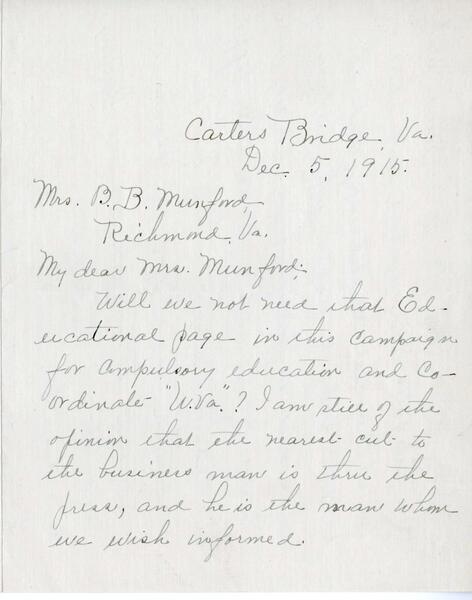 Carters Bridge, Va.
Dec. 5, 1915.
Mrs. B. B. Munford,
Richmond, Va.
My dear Mrs. Munford:
Will we not need that Ed-
ucational page in this campaign
for compulsory education and Co-
ordinate "U.Va."? I am still of the
opinion that the nearest cut to
the business man is thru the
press, and he is the man whom
we wish informed.